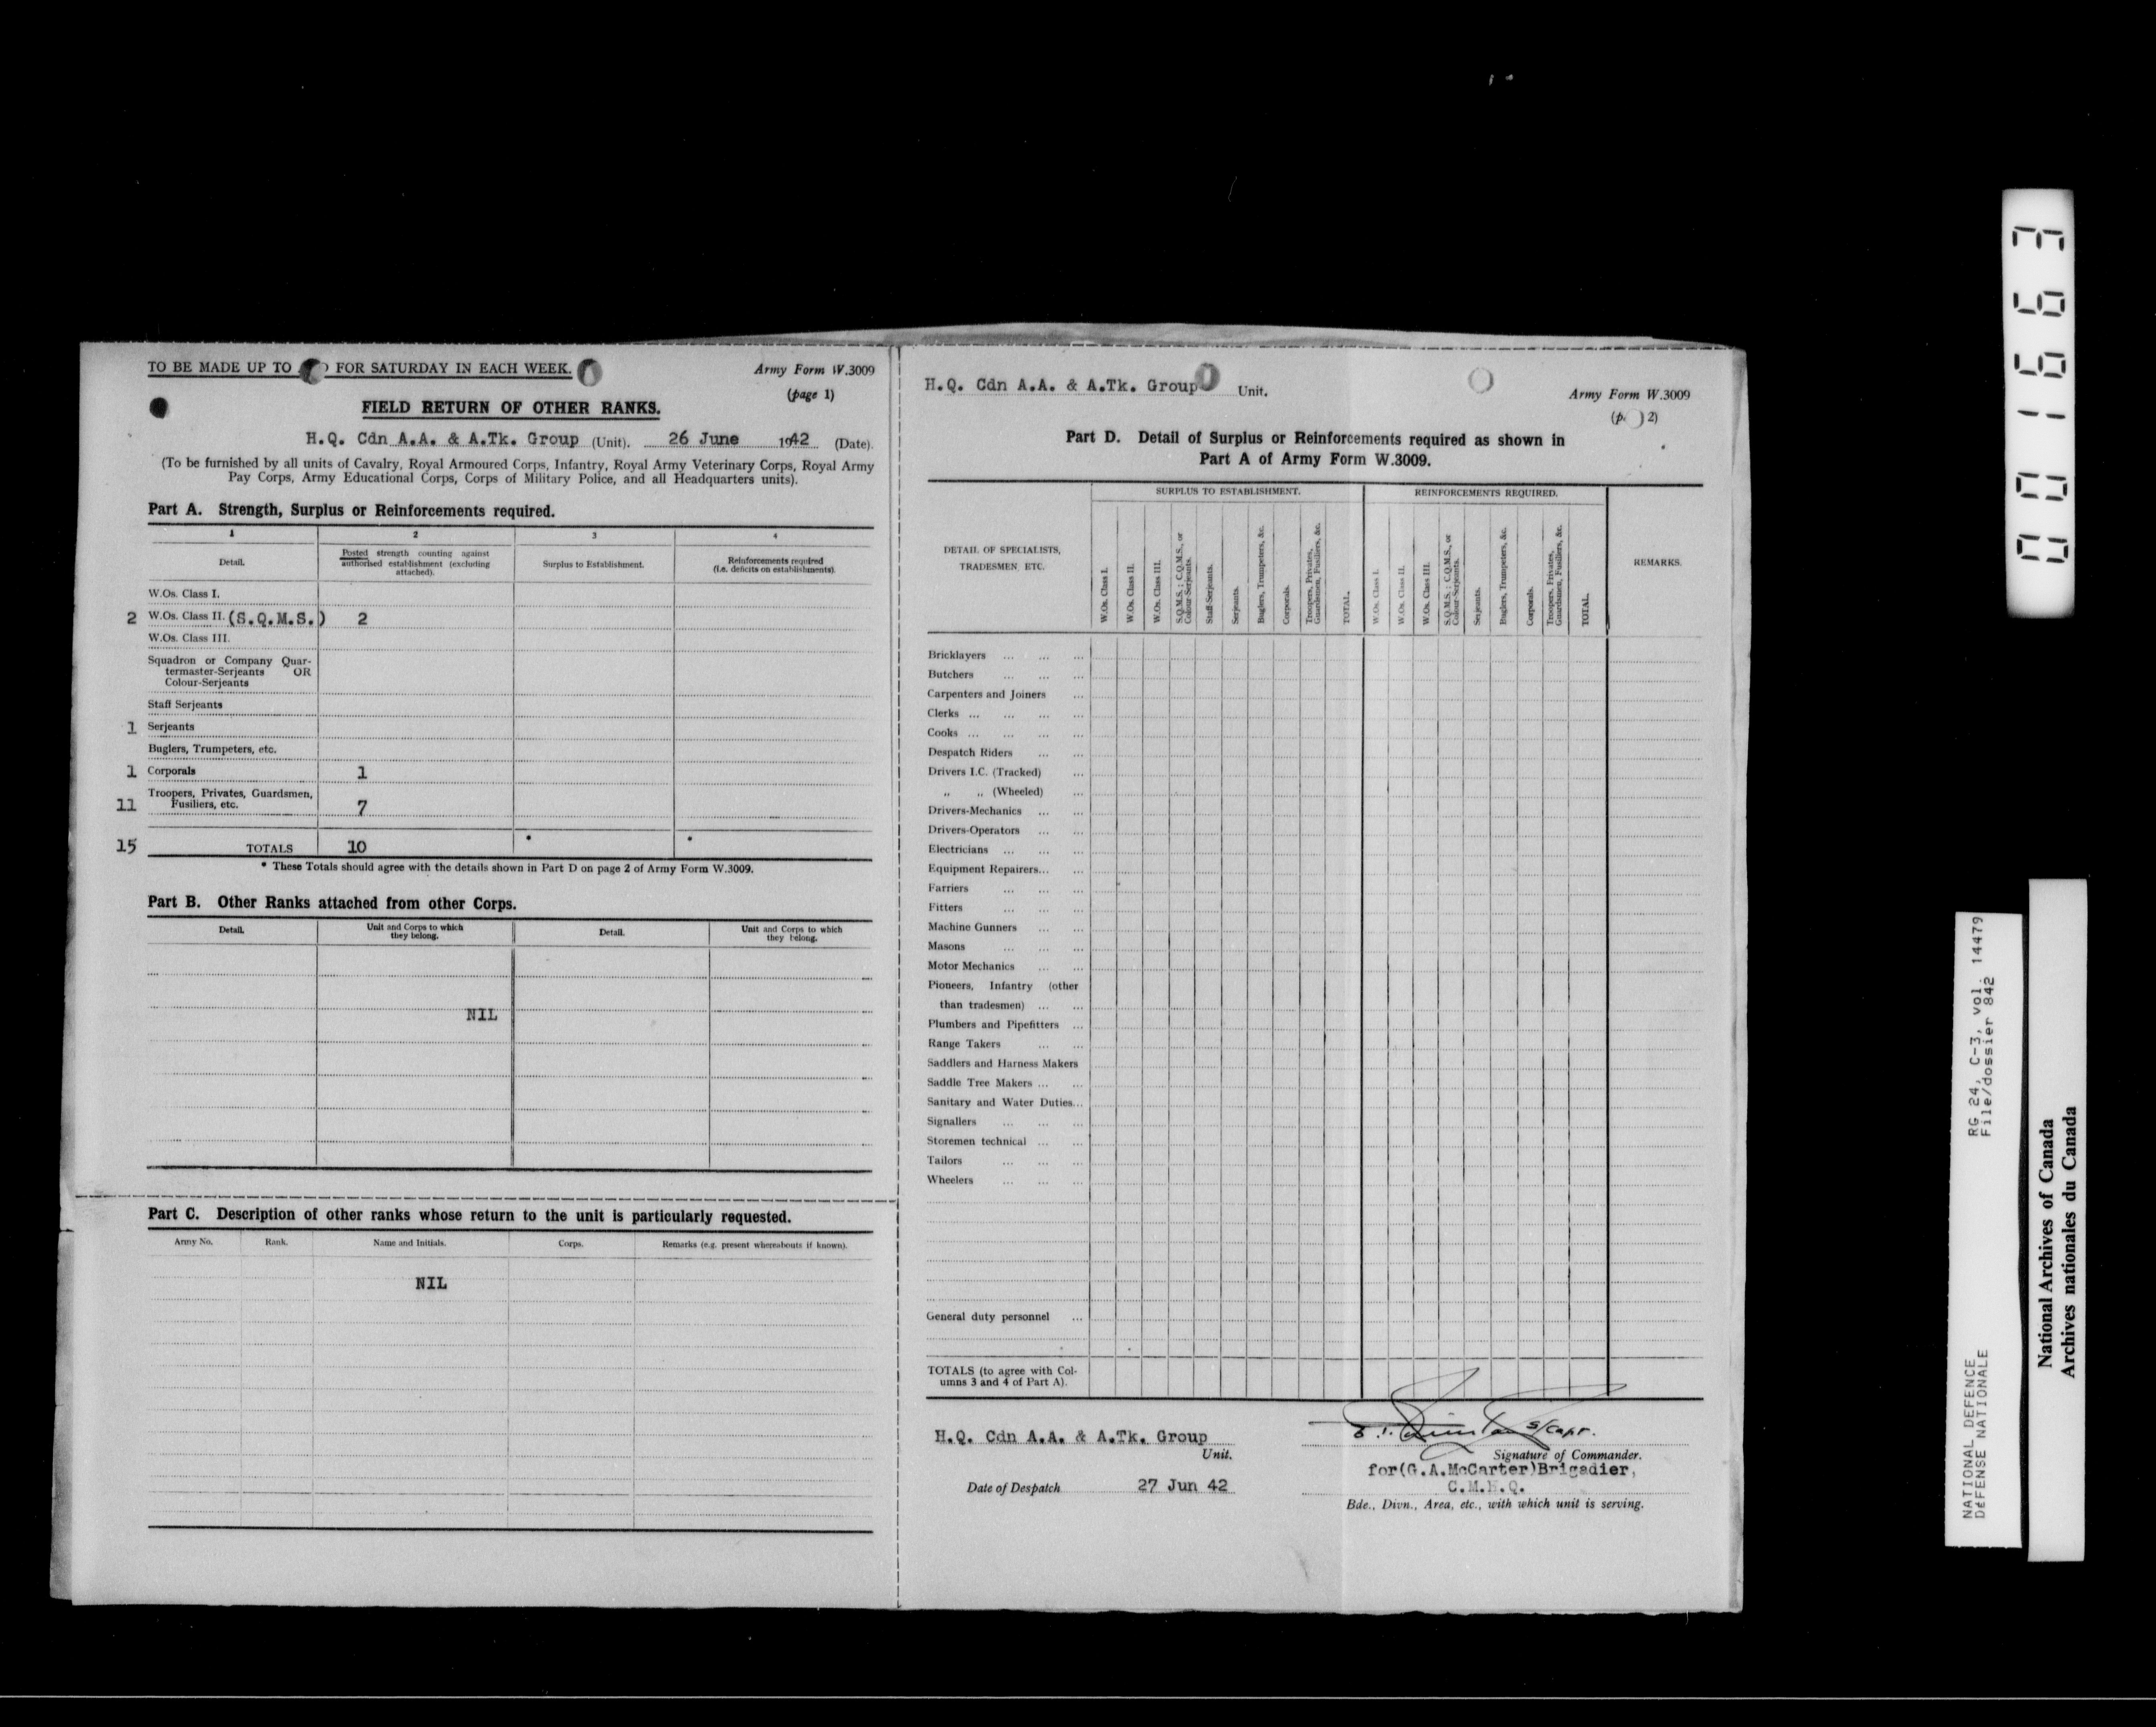 TO BE MADE UP TO FOR SATURDAY IN EACH WEEK.
Army Form W.3009
(page 1)
FIELD RETURN OF OTHER RANKS.
H.Q. Cdn A.A. & A.Tk. Group (Unit). 26 June 1942 (Date).
(To be furnished by all units of Cavalry, Royal Armoured Corps, Infantry, Royal Army Veterinary Corps, Royal Army
Pay Corps, Army Educational Corps, Corps of Military Police, and all Headquarters units).
Part A. Strength, Surplus or Reinforcements required.
1 2 3 4
Detail.
Posted strength counting against
authorised establishment (excluding
attached).
Surplus to Establishment.
Reinforcements required
(i.e. deficits on establishments).
W.Os. Class I.
2 W.Os. Class II. (S.Q.M.S.) 2
W.Os. Class III.
Squadron or Company Quar-
termaster-Serjeants OR
Colour-Serjeants
Staff Serjeants
1 Serjeants
Buglers, Trumpeters, etc.
1 Corporals 1
Troopers, Privates, Guardsmen,
11 Fusiliers, etc. 7
15 TOTALS 10 * *
* These Totals should agree with the details shown in Part D on page 2 of Army Form W.3009.
Part B. Other Ranks attached from other Corps.
Detail.
Unit and Corps to which
they belong.
Detail.
Unit and Corps to which
they belong.
NIL
Part C. Description of other ranks whose return to the unit is particularly requested.
Army No. Rank. Name and Initials. Corps. Remarks (e.g. present whereabouts if known).
NIL
H.Q. Cdn A.A. & A.Tk. Group Unit.
Army Form W.3009
(p. 2)
Part D. Detail of Surplus or Reinforcements required as shown in
Part A of Army Form W.3009.
DETAIL OF SPECIALISTS,
TRADESMEN, ETC.
SURPLUS TO ESTABLISHMENT.
W.Os. Class I.
W.Os. Class II.
W.Os. Class III.
S.Q.M.S.; C.Q.M.S., or
Colour-Serjeants.
Staff-Serjeants.
Serjeants.
Buglers, Trumpeters, &c.
Corporals.
Troopers, Privates,
Guardsmen, Fusiliers, &c.
TOTAL.
REINFORCEMENTS REQUIRED.
W.Os. Class I.
W.Os. Class II.
W.Os. Class III.
S.Q.M.S.; C.Q.M.S., or
Colour-Serjeants.
Serjeants.
Buglers, Trumpeters, &c.
Corporals.
Troopers, Privates,
Guardsmen, Fusiliers, &c.
TOTAL.
REMARKS.
Bricklayers ... ... ...
Butchers ... ... ...
Carpenters and Joiners ...
Clerks ... ... ... ...
Cooks ... ... ... ...
Despatch Riders ... ...
Drivers I.C. (Tracked) ...
„ „ (Wheeled) ...
Drivers-Mechanics ... ...
Drivers-Operators ... ...
Electricians ... ... ...
Equipment Repairers... ...
Farriers ... ... ...
Fitters ... ... ...
Machine Gunners ... ...
Masons ... ... ...
Motor Mechanics ... ...
Pioneers, Infantry (other
than tradesmen) ... ...
Plumbers and Pipefitters ...
Range Takers ... ...
Saddlers and Harness Makers
Saddle Tree Makers ... ...
Sanitary and Water Duties...
Signallers ... ... ...
Storemen technical ... ...
Tailors ... ... ...
Wheelers ... ... ...
General duty personnel ...
TOTALS (to agree with Col-
umns 3 and 4 of Part A).
H.Q. Cdn A.A. & A.Tk. Group
Unit.
Date of Despatch 27 Jun 42
S/Capt.
Signature of Commander.
for(G.A.McCarter)Brigadier,
C.M.H.Q.
Bde., Divn., Area, etc., with which unit is serving.
001663
NATIONAL DEFENCE RG 24, C-3, vol. 14479
DéFENSE NATIONALE File/dossier 842
National Archives of Canada
Archives nationales du Canada